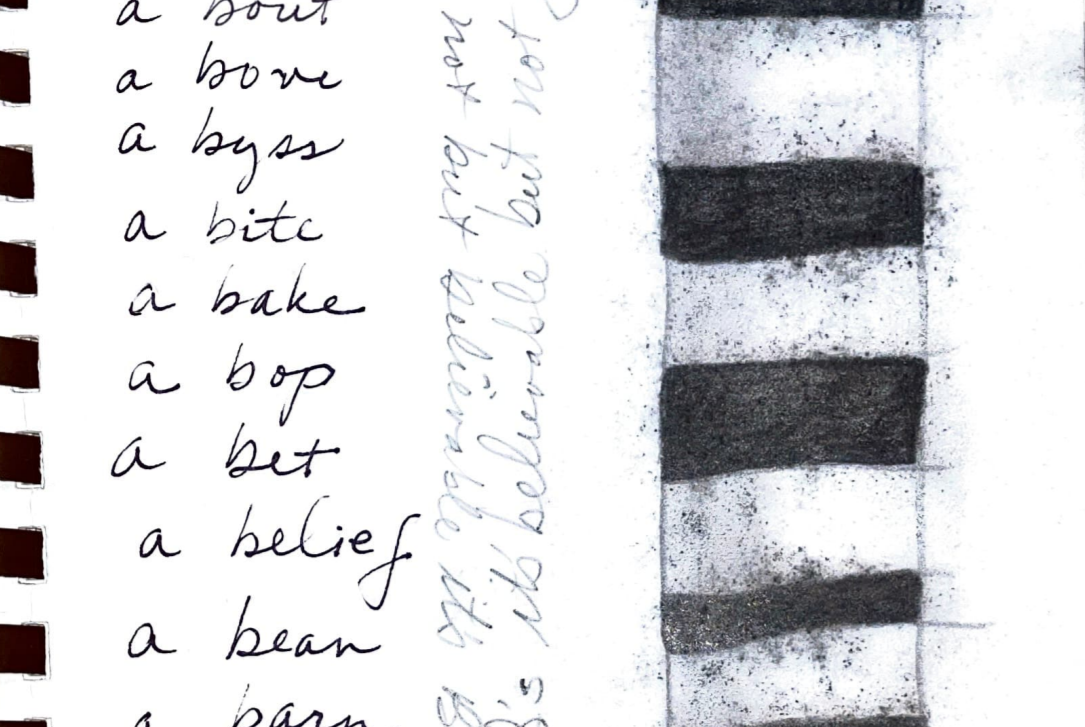 a bout
a bove
a byss
a bite
a bake
a bop
a bet
a belief
a bean
a barn
its believable but not
's its believable but not